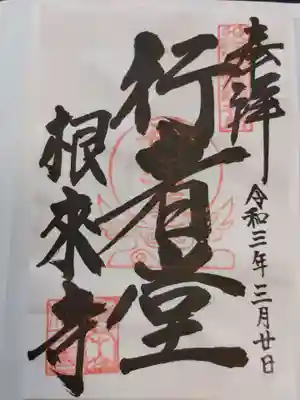 奉拝
令和三年三月廿日
行者堂
根来寺